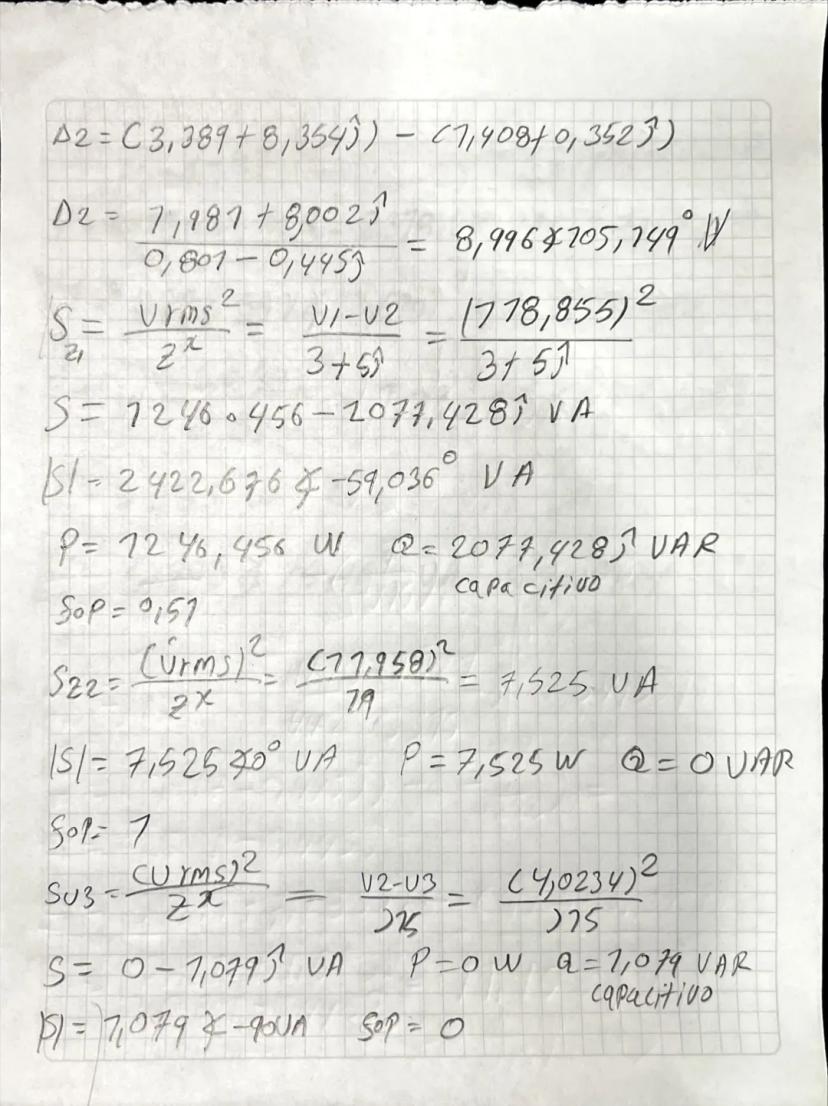 Δ2 = (3,389 + 8,354ĵ) - (1,408 + 0,352ĵ)
Δ2 = (1,981 + 8,002ĵ) / (0,801 - 0,445ĵ) = 8,996∡105,149° V
S_Z1 = Vrms² / Z* = V1-V2 / 3+5ĵ = (118,855)² / 3+5ĵ
S = 1246.456 - 2077,428ĵ VA
|S| = 2422,676∡-59,036° VA
P = 1246,456 W Q = 2077,428ĵ VAR
capacitivo
fop = 0,51
Sz2 = (Vrms)² / Z* = (11,958)² / 19 = 7,525 VA
|S| = 7,525∡0° VA P = 7,525 W Q = 0 VAR
fop = 1
Sv3 = (Vrms)² / Z* = V2-V3 / J15 = (4,0234)² / J15
S = 0 - 1,079ĵ VA P = 0 W Q = 1,079 VAR
capacitivo
|S| = 1,079∡-90 VA fop = 0